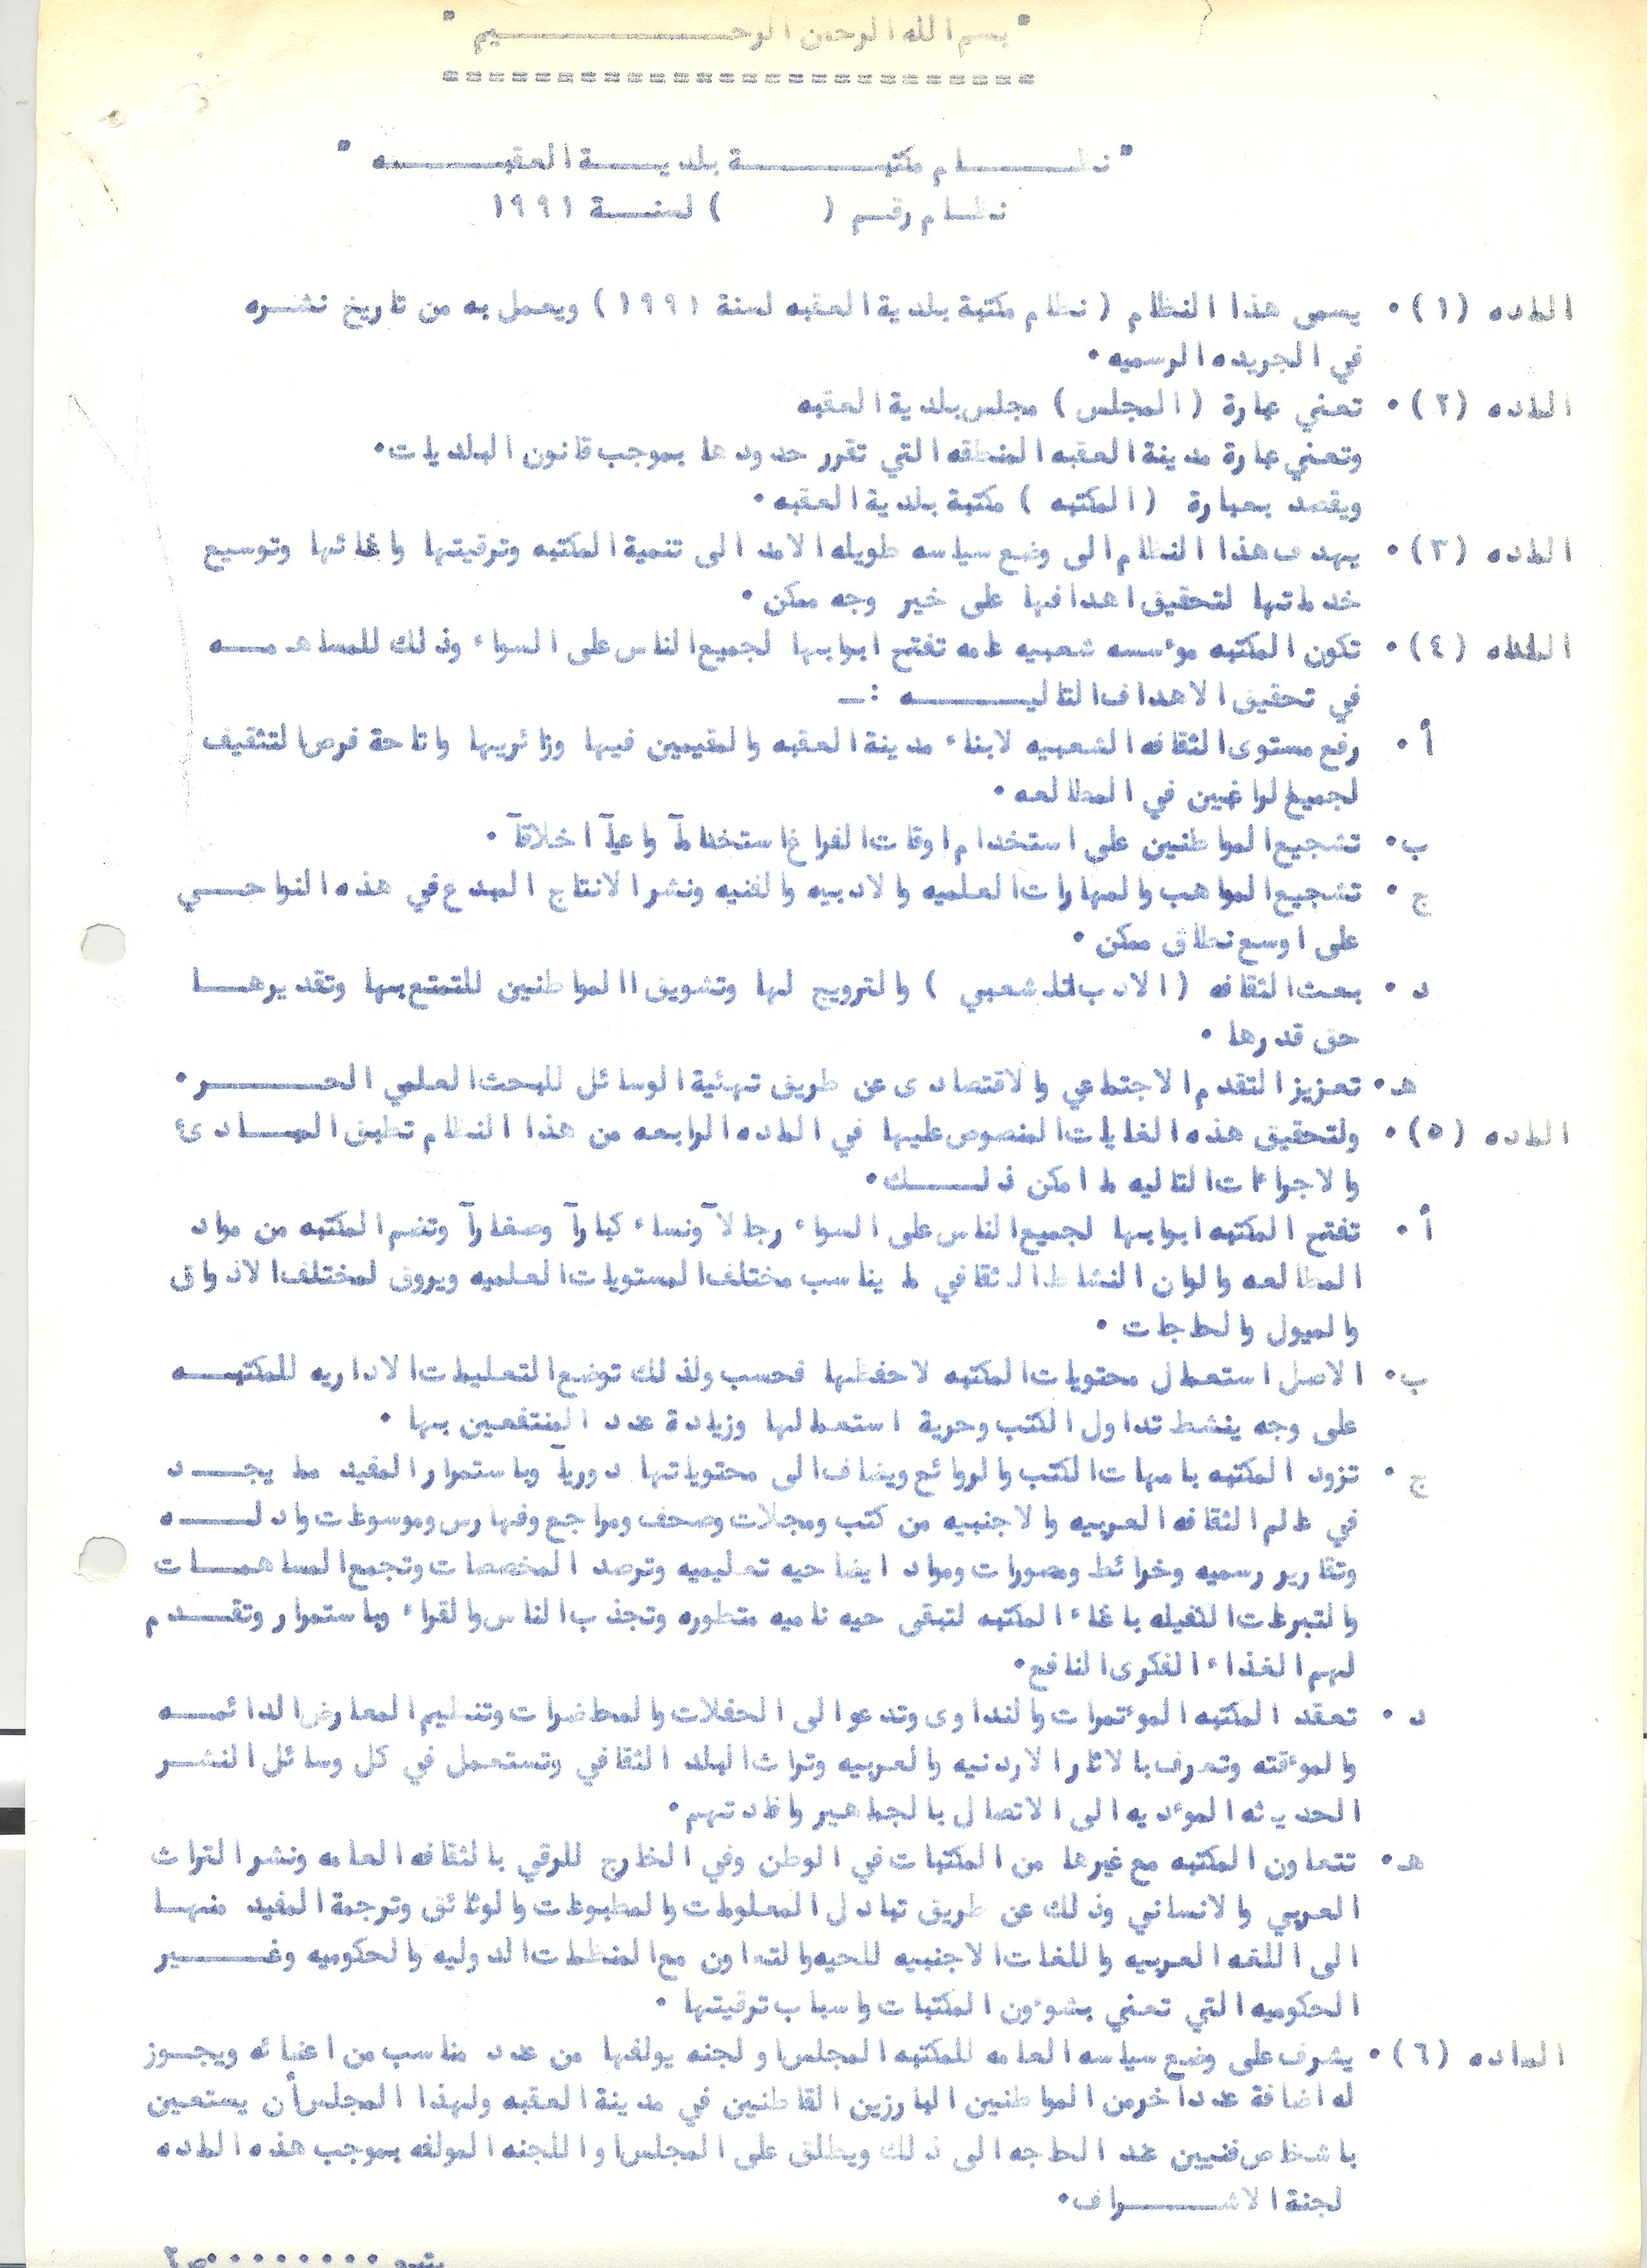 " بسم الله الرحمن الرحـــــــــــيم "
==========================
" نظـــــــام مكتبــــــــــــة بلديـــــة العقبــــــــه "
نظـــام رقـــم (      ) لسنـــــة ١٩٩١
الماده (١)• يسمى هذا النظام (نظام مكتبة بلدية العقبه لسنة ١٩٩١) ويعمل به من تاريخ نشـــره
في الجريده الرسميه•
الماده (٢)• تعني عبارة (المجلس) مجلس بلدية العقبه
وتعني عبارة مدينة العقبه المنطقه التي تقرر حدودها بموجب قانون البلديات•
ويقصد بعبارة (المكتبه) مكتبة بلدية العقبه•
الماده (٣)• يهدف هذا النظام الى وضع سياسه طويله الامد الى تنمية المكتبه وترقيتها واغنائها وتوسيع
خدماتها لتحقيق اهدافها على خير وجه ممكن•
الماده (٤)• تكون المكتبه موءسسه شعبيه عامه تفتح ابوابها لجميع الناس على السواء وذلك للمساهمــــه
في تحقيق الاهداف التاليــــــــه :ــ
أ • رفع مستوى الثقافه الشعبيه لابناء مدينة العقبه والمقيمين فيها وزائريها واتاحة فرص التثقيف
لجميع الراغبين في المطالعه•
ب• تشجيع المواطنين على استخدام اوقات الفراغ استخداماً واعياً اخلاقاً•
ج • تشجيع المواهب والمهارات العلميه والادبيه والفنيه ونشر الانتاج المبدع في هذه النواحــــي
على اوسع نطاق ممكن•
د • بعث الثقافه (الادب الشعبي) والترويج لها وتشويق االمواطنين للتمتع بها وتقديرهـــا
حق قدرها•
هـ• تعزيز التقدم الاجتماعي والاقتصادى عن طريق تهيئة الوسائل للبحث العلمي الحـــــــــر•
الماده (٥)• ولتحقيق هذه الغايات المنصوص عليها في الماده الرابعه من هذا النظام تطبق المبـــادىء
والاجراءات التاليه ما امكن ذلـــــك•
أ • تفتح المكتبه ابوابها لجميع الناس على السواء رجالاً ونساء كباراً وصغاراً وتضم المكتبه من مواد
المطالعه والوان النشاط الثقافي ما يناسب مختلف المستويات العلميه ويروق لمختلف الاذواق
والميول والحاجات•
ب• الاصل استعمال محتويات المكتبه لاحفظها فحسب ولذلك توضع التعليمات الاداريه للمكتبـــه
على وجه ينشط تداول الكتب وحرية استعمالها وزيادة عدد المنتفعين بها•
ج • تزود المكتبه بامهات الكتب والروائع ويضاف الى محتوياتها دورياً وباستمرار المفيد مما يجـــد
في عالم الثقافه العربيه والاجنبيه من كتب ومجلات وصحف ومراجع وفهارس وموسوعات وادلـــه
وتقارير رسميه وخرائط ومصورات ومواد ايضاحيه تعليميه وترصد المخصصات وتجمع المساهمـــات
والتبرعات الكفيله باغناء المكتبه لتبقى حيه ناميه متطوره وتجذب الناس والقراء وباستمرار وتقـــدم
لهم الغذاء الفكرى النافع•
د • تعقد المكتبه الموءتمرات والنداوى وتدعو الى الحفلات والمحاضرات وتنظيم المعارض الدائمـــه
والموءقته وتعرف بالاثار الاردنيه والعربيه وتراث البلد الثقافي وتستعمل في كل وسائل النشـــر
الحديثه الموءديه الى الاتصال بالجماهير وافادتهم•
هـ• تتعاون المكتبه مع غيرها من المكتبات في الوطن وفي الخارج للرقي بالثقافه العامه ونشر التراث
العربي والانساني وذلك عن طريق تبادل المعلومات والمطبوعات والوثائق وترجمة المفيد منهـــا
الى اللغه العربيه واللغات الاجنبيه للحيه والتعاون مع المنظمات الدوليه والحكوميه وغـــــير
الحكوميه التي تعني بشوءون المكتبات واسباب ترقيتها•
الماده (٦)• يشرف على وضع سياسه العامه للمكتبه المجلس او لجنه يولفها من عدد مناسب من اعضائه ويجـــوز
له اضافة عدد آخر من المواطنين البارزين القاطنين في مدينة العقبه ولهذا المجلس أن يستعين
باشخاص فنيين عند الحاجه الى ذلك ويطلق على المجلس او اللجنه المولفه بموجب هذه الماده
لجنة الاشـــــــراف•
يتبع •••••••••ص٢